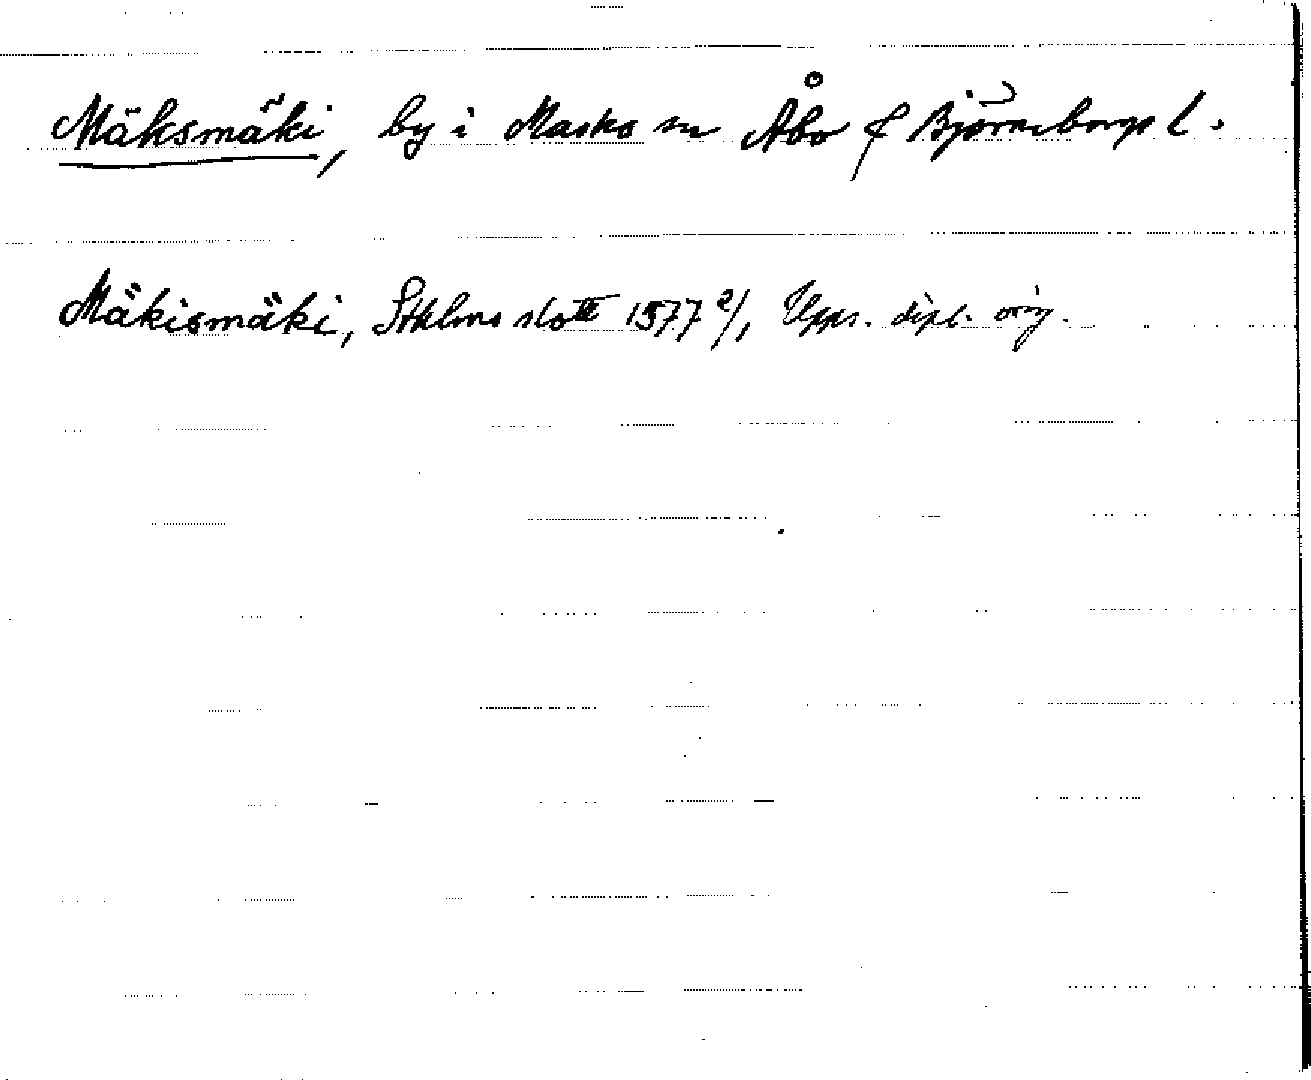 Mäksmäki, by i Masko sn Åbo & Björneborgs l.
Mäkismäki, Sthlms slott 1577 2/, Upps. dipl. orig.